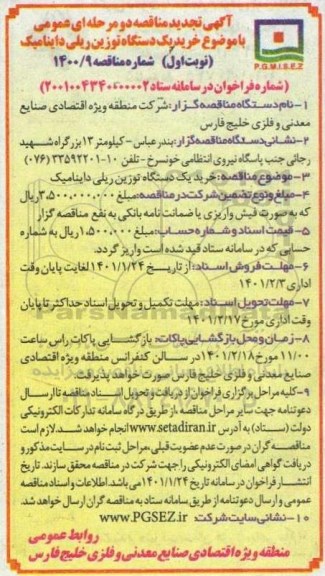 آگهی تجدید مناقصه دو مرحله ای عمومی
با موضوع خرید یک دستگاه توزین ریلی داینامیک
(نوبت اول) شماره مناقصه ۱۴۰۰/۹
P.G.M.I.S.E.Z
(شماره فراخوان در سامانه ستاد ۲۰۰۱۰۰۴۳۴۰۶۰۰۰۰۲)
۱- نام دستگاه مناقصه گزار: شرکت منطقه ویژه اقتصادی صنایع
معدنی و فلزی خلیج فارس
۲- نشانی دستگاه مناقصه گزار: بندرعباس - کیلومتر ۱۳ بزرگراه شهید
رجائی جنب پاسگاه نیروی انتظامی خونسرخ - تلفن ۱۰-۳۳۵۹۲۲۰۱ (۰۷۶)
۳- موضوع مناقصه: خرید یک دستگاه توزین ریلی داینامیک
۴- مبلغ و نوع تضمین شرکت در مناقصه: مبلغ ۳,۵۰۰,۰۰۰,۰۰۰ ریال
که به صورت فیش واریزی یا ضمانت نامه بانکی به نفع مناقصه گزار
۵- قیمت اسناد و شماره حساب: مبلغ ۱,۵۰۰,۰۰۰ ریال به شماره
حسابی که در سامانه ستاد قید شده است واریز گردد.
۶- مهلت فروش اسناد: از تاریخ ۱۴۰۱/۱/۲۴ لغایت پایان وقت
اداری ۱۴۰۱/۲/۳
۷- مهلت تحویل اسناد: مهلت تکمیل و تحویل اسناد حداکثر تا پایان
وقت اداری مورخ ۱۴۰۱/۳/۱۷
۸- زمان و محل بازگشایی پاکات: بازگشایی پاکات راس ساعت
۱۱/۰۰ مورخ ۱۴۰۱/۲/۱۸ در سالن کنفرانس منطقه ویژه اقتصادی
صنایع معدنی و فلزی خلیج فارس صورت خواهد پذیرفت.
۹- کلیه مراحل برگزاری فراخوان از دریافت و تحویل اسناد مناقصه تا ارسال
دعوتنامه جهت سایر مراحل مناقصه، از طریق درگاه سامانه تدارکات الکترونیکی
دولت (ستاد) به آدرس www.setadiran.ir انجام خواهد شد. لازم است
مناقصه گران در صورت عدم عضویت قبلی، مراحل ثبت نام در سایت مذکور و
دریافت گواهی امضای الکترونیکی را جهت شرکت در مناقصه محقق سازند. تاریخ
انتشار فراخوان در سامانه تاریخ ۱۴۰۱/۱/۲۴ می باشد. اطلاعات و اسناد مناقصه
عمومی و ارسال دعوتنامه از طریق سامانه ستاد به مناقصه گران ارسال خواهد شد.
۱۰- نشانی سایت شرکت: www.PGSEZ.ir
روابط عمومی
منطقه ویژه اقتصادی صنایع معدنی و فلزی خلیج فارس